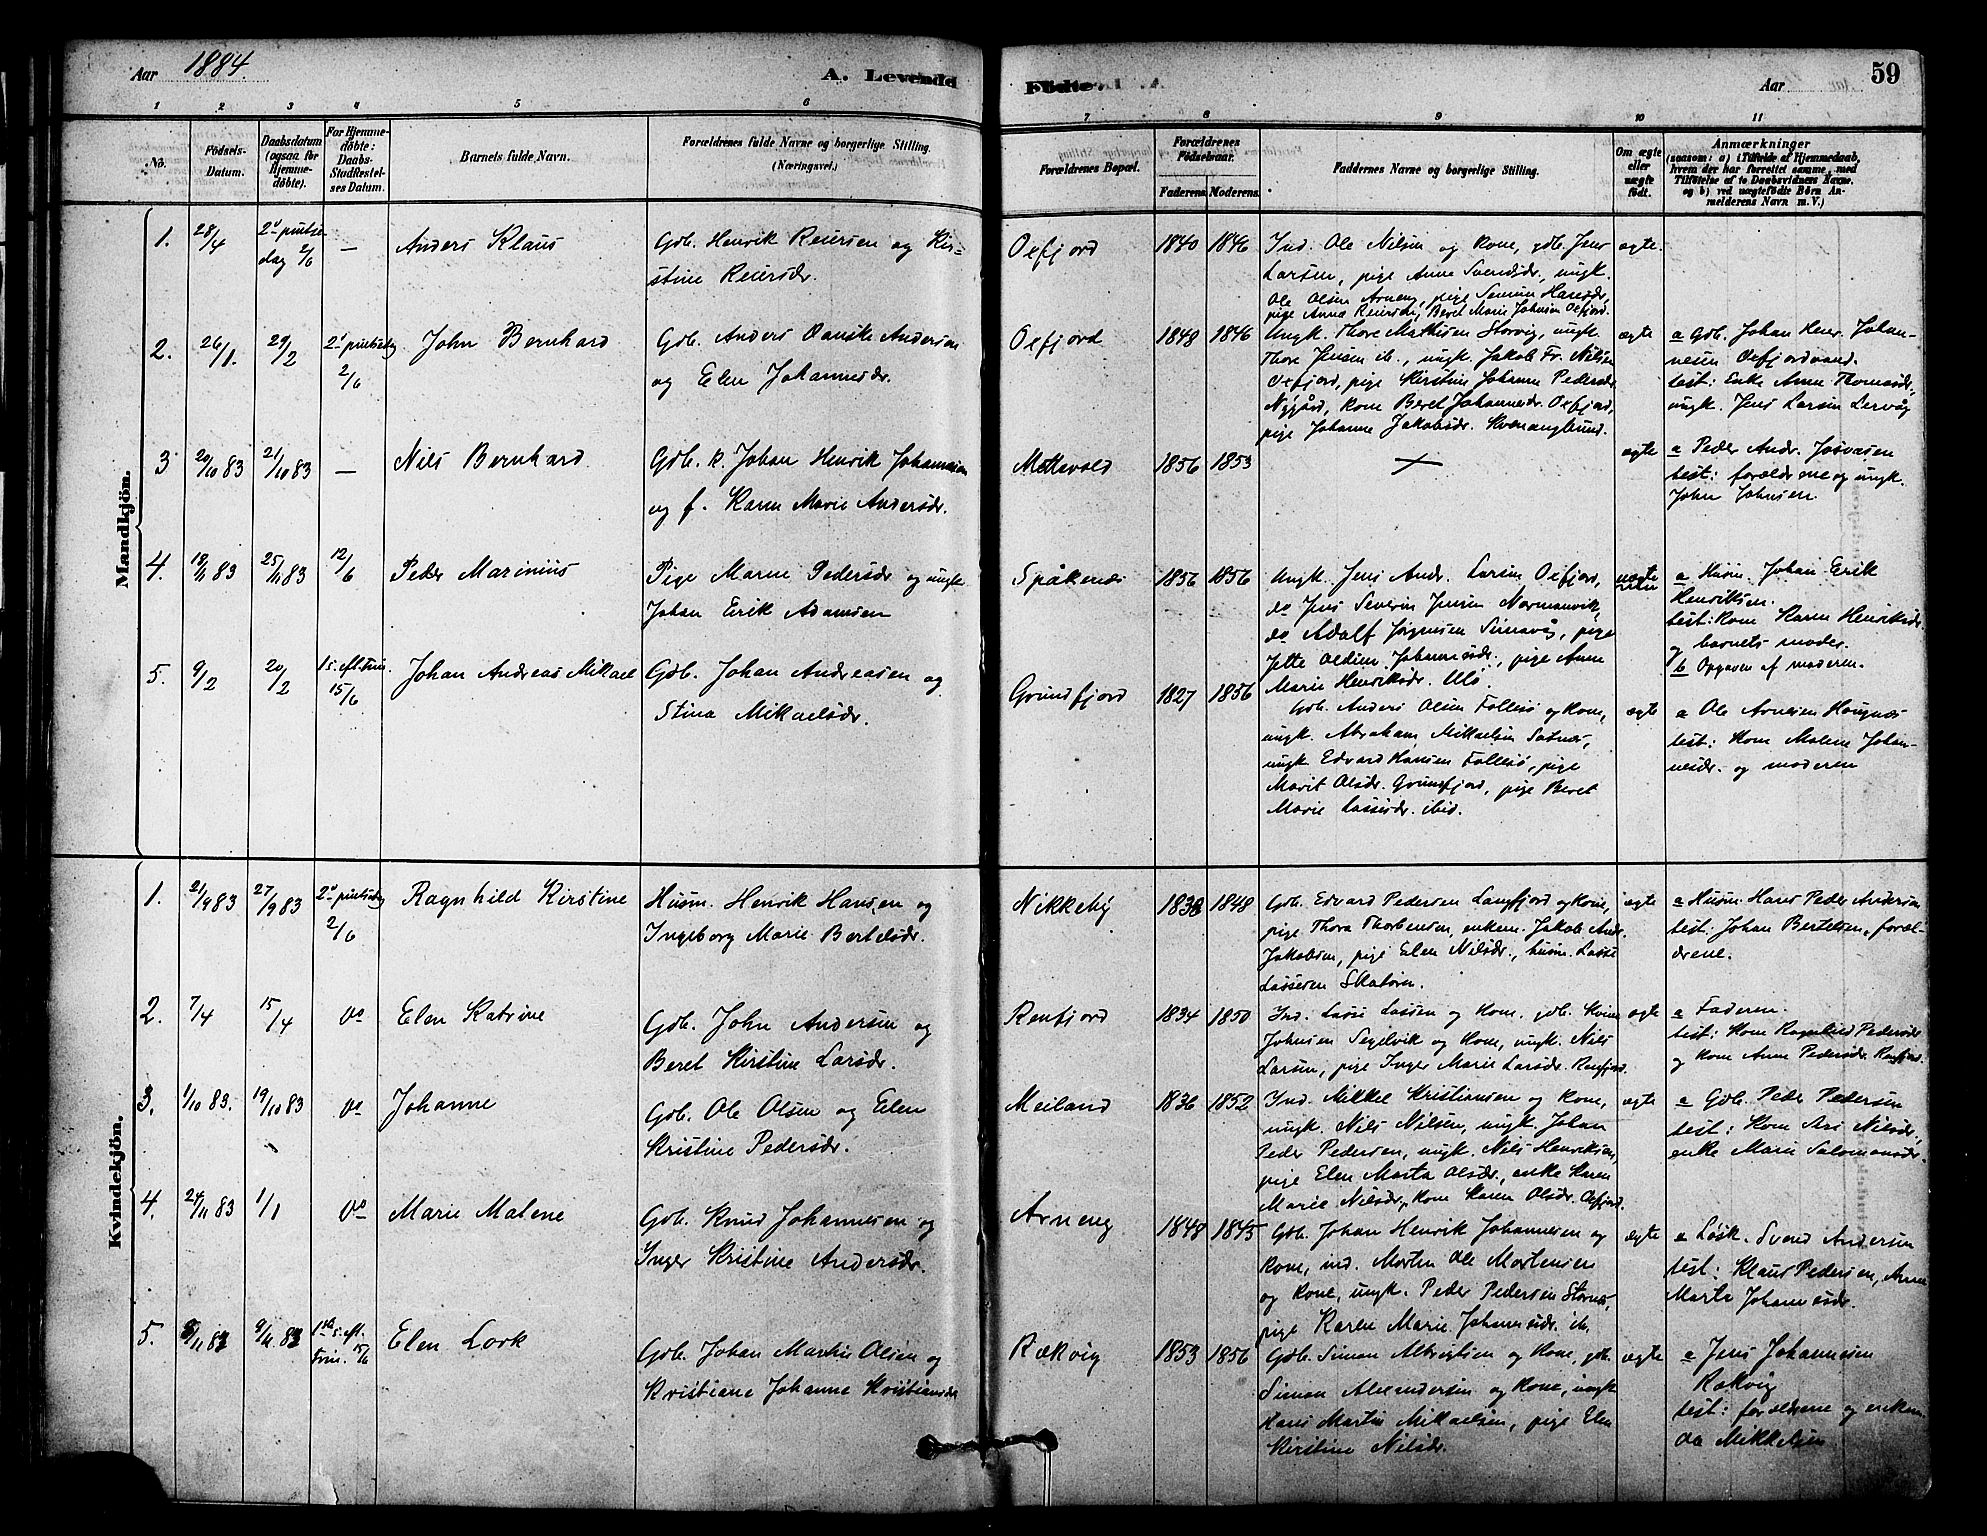 Aar 1884.
A. Levende
Fødte.
Aar
59
1 2 3 4 5 6 7 8 9 10 11
No.
Fødsels-
Datum.
Daabsdatum
(ogsaa for
Hjemme-
døbte).
For Hjemme-
døbte:
Daabs-
Stadfæstel-
ses Datum.
Barnets fulde Navn.
Forældrenes fulde Navne og borgerlige Stilling.
(Næringsvei.)
Forældrenes Bopæl.
Forældrenes
Fødselsaar.
Faderens. Moderens.
Faddernes Navne og borgerlige Stilling.
Om ægte
eller
uægte
født.
Anmærkninger
(saasom: a) i Tilfælde af Hjemmedaab,
hvem der har forrettet samme, med
Tilføielse af to Daabsvidners Navne,
og b) ved uægtefødte Børn An-
melderens Navn m. V.)
Mandkjön.
1. 28/4 2 pintse
dag 2/6 — Anders Klaus
Gdb. Henrik Reiersen og Kir-
stine Reiersdr.
Oxfjord 1840 1846
Ind. Ole Nilsen og kone, gdb. Jens
Larsen, pige Anne Svendsdr, ungk.
Ole Olsen Arneng, pige Hansdr,
pige Anna Reiersdr, Beret Marie Johnsen Oxfjord.
ægte.
2. 26/1. 29/2 2 pintsedag
2/6
John Bernhard
Gdb. Anders Danske Andersen
og Elen Johannesdr.
Oxfjord 1848 1846
Ungk. Thore Mathisen Storvig, ungk.
Thore Jensen ib., ungk. Jakob Fr. Nilsen
Oxfjord, pige Kirstine Johanne Pedersdr
Nygård, kone Beret Johannesdr. Oxfjord,
pige Johanne Jakobsdr. Kvenangsund.
ægte
a Gdb. Johan Henr. Johan-
nesen Oxfjordvand.
test: Enke Anne Thomasdr,
ungk. Jens Larsen Lervåg
3 20/10 83 21/10 83 — Nils Bernhard
Gdb. k. Johan Henrik Johannesen
og f. Karen Marie Andersdr.
Mettevold 1856 1853
ægte
a Peder Andr. Josvasen
test: forældrene og ungk.
John Johnsen
4. 18/11 83 25/11 83 12/6 Peder Marinius
Pige Maren Pedersdr og ungk
Johan Erik Adamsen
Spåkenes 1856 1856
Ungk. Jens Andr. Larsen Oxfjord,
do Jens Severin Jensen Normanvik,
do Adolf Jørgensen Simavåg, pige
Jette Oldine Johannesdr., pige Anne
Marie Henriksdr. Ulö.
uægte
a Husm. Johan Erik
Henriksen.
test: kone Karen Henriksdr.
og barnets moder.
b Opgaven af moderen.
5. 9/2 20/2 1 s. eft. Trin.
15/6
Johan Andreas Mikael
Gdb. Johan Andreasen og
Stina Mikaelsdr.
Grundfjord 1827 1856
Gdb. Anders Olsen Follesö og kone,
ungk. Abraham Mikkelsen Sotnes,
ungk Edvard Hansen Follesö, pige
Marit Olsdr. Grundfjord, pige Beret
Marie Lassesdr. ibid.
ægte
a Ole Arnesen Haugnes
test: kone Malene Johan-
nesdr. og moderen
Kvindekjön.
1. 21/9 83 27/9 83 2 pintsedag
2/6
Ragnhild Kirstine
Husm. Henrik Hansen og
Ingeborg Marie Bertelsdr.
Nikkeby 1838 1848
Gdb. Edvard Pedersen Langfjord og kone,
pige Thora Thorbensen, enkem. Jakob Andr.
Jakobsen, pige Elen Nilsdr., husm. Lasse
Lassesen Skatørn.
ægte
a Husm. Hans Peder Andersen
test: Johan Bertelsen, foræl-
drene.
2. 7/4 15/4 do Elen Katrine
Gdb. John Andersen og
Beret Kirstine Larsdr.
Renfjord 1834 1850
Ind. Lasse Lassen og kone, gdb.
Johnsen Segelvik og kone, ungk. Nils
Larsen, pige Inger Marie Larsdr. Renfjord.
ægte
a Faderen.
test: kone Ragnhild Pedersdr
og kone Anne Pedersdr. Renfjord.
3. 1/10 83. 19/10 83 do Johanne
Gdb. Ole Olsen og Elen
Kristine Pedersdr.
Meiland 1836 1852
Ind. Mikkel Kristiansen og kone,
ungk. Nils Nilsen, ungk. Johan
Peder Pedersen, ungk. Nils Henriksen,
pige Elen Marta Olsdr, enke Karen
Marie Nilsdr, kone Karen Olsdr. Oxfjord.
ægte
a Gdb. Peder Pedersen
test: kone Nilsdr.,
enke Marie Salomonsdr.
4. 24/11 83 1/1 do Marie Malene
Gdb. Knud Johannesen og
Inger Kristine Andersdr.
Arneng 1848 1845
Gdb. Johan Henrik Johannesen og
kone, ind. Morten Ole Mortensen
og kone, ungk. Peder Pedersen Stornes,
pige Karen Marie Johannesdr. ib.
ægte
a Løsk. Svend Andersen
test: Klaus Pedersen, Anne
Marta Johannesdr.
5. 5/11 83 9/11 83 1ste s. eft.
Trin. 15/6
Elen Lovk
Gdb. Johan Martin Olsen og
Kristiane Johanne Kristiansdr
Rækvig 1853 1856
Gdb. Simon Albrigtsen og kone, gdb.
Simon Alexandersen og kone, ungk
Hans Martin Mikaelsen, pige Elen
Kirstine Nilsdr.
ægte
a Jens Johannesen
Rakvig
test: forældrene og enkem.
Mikkelsen